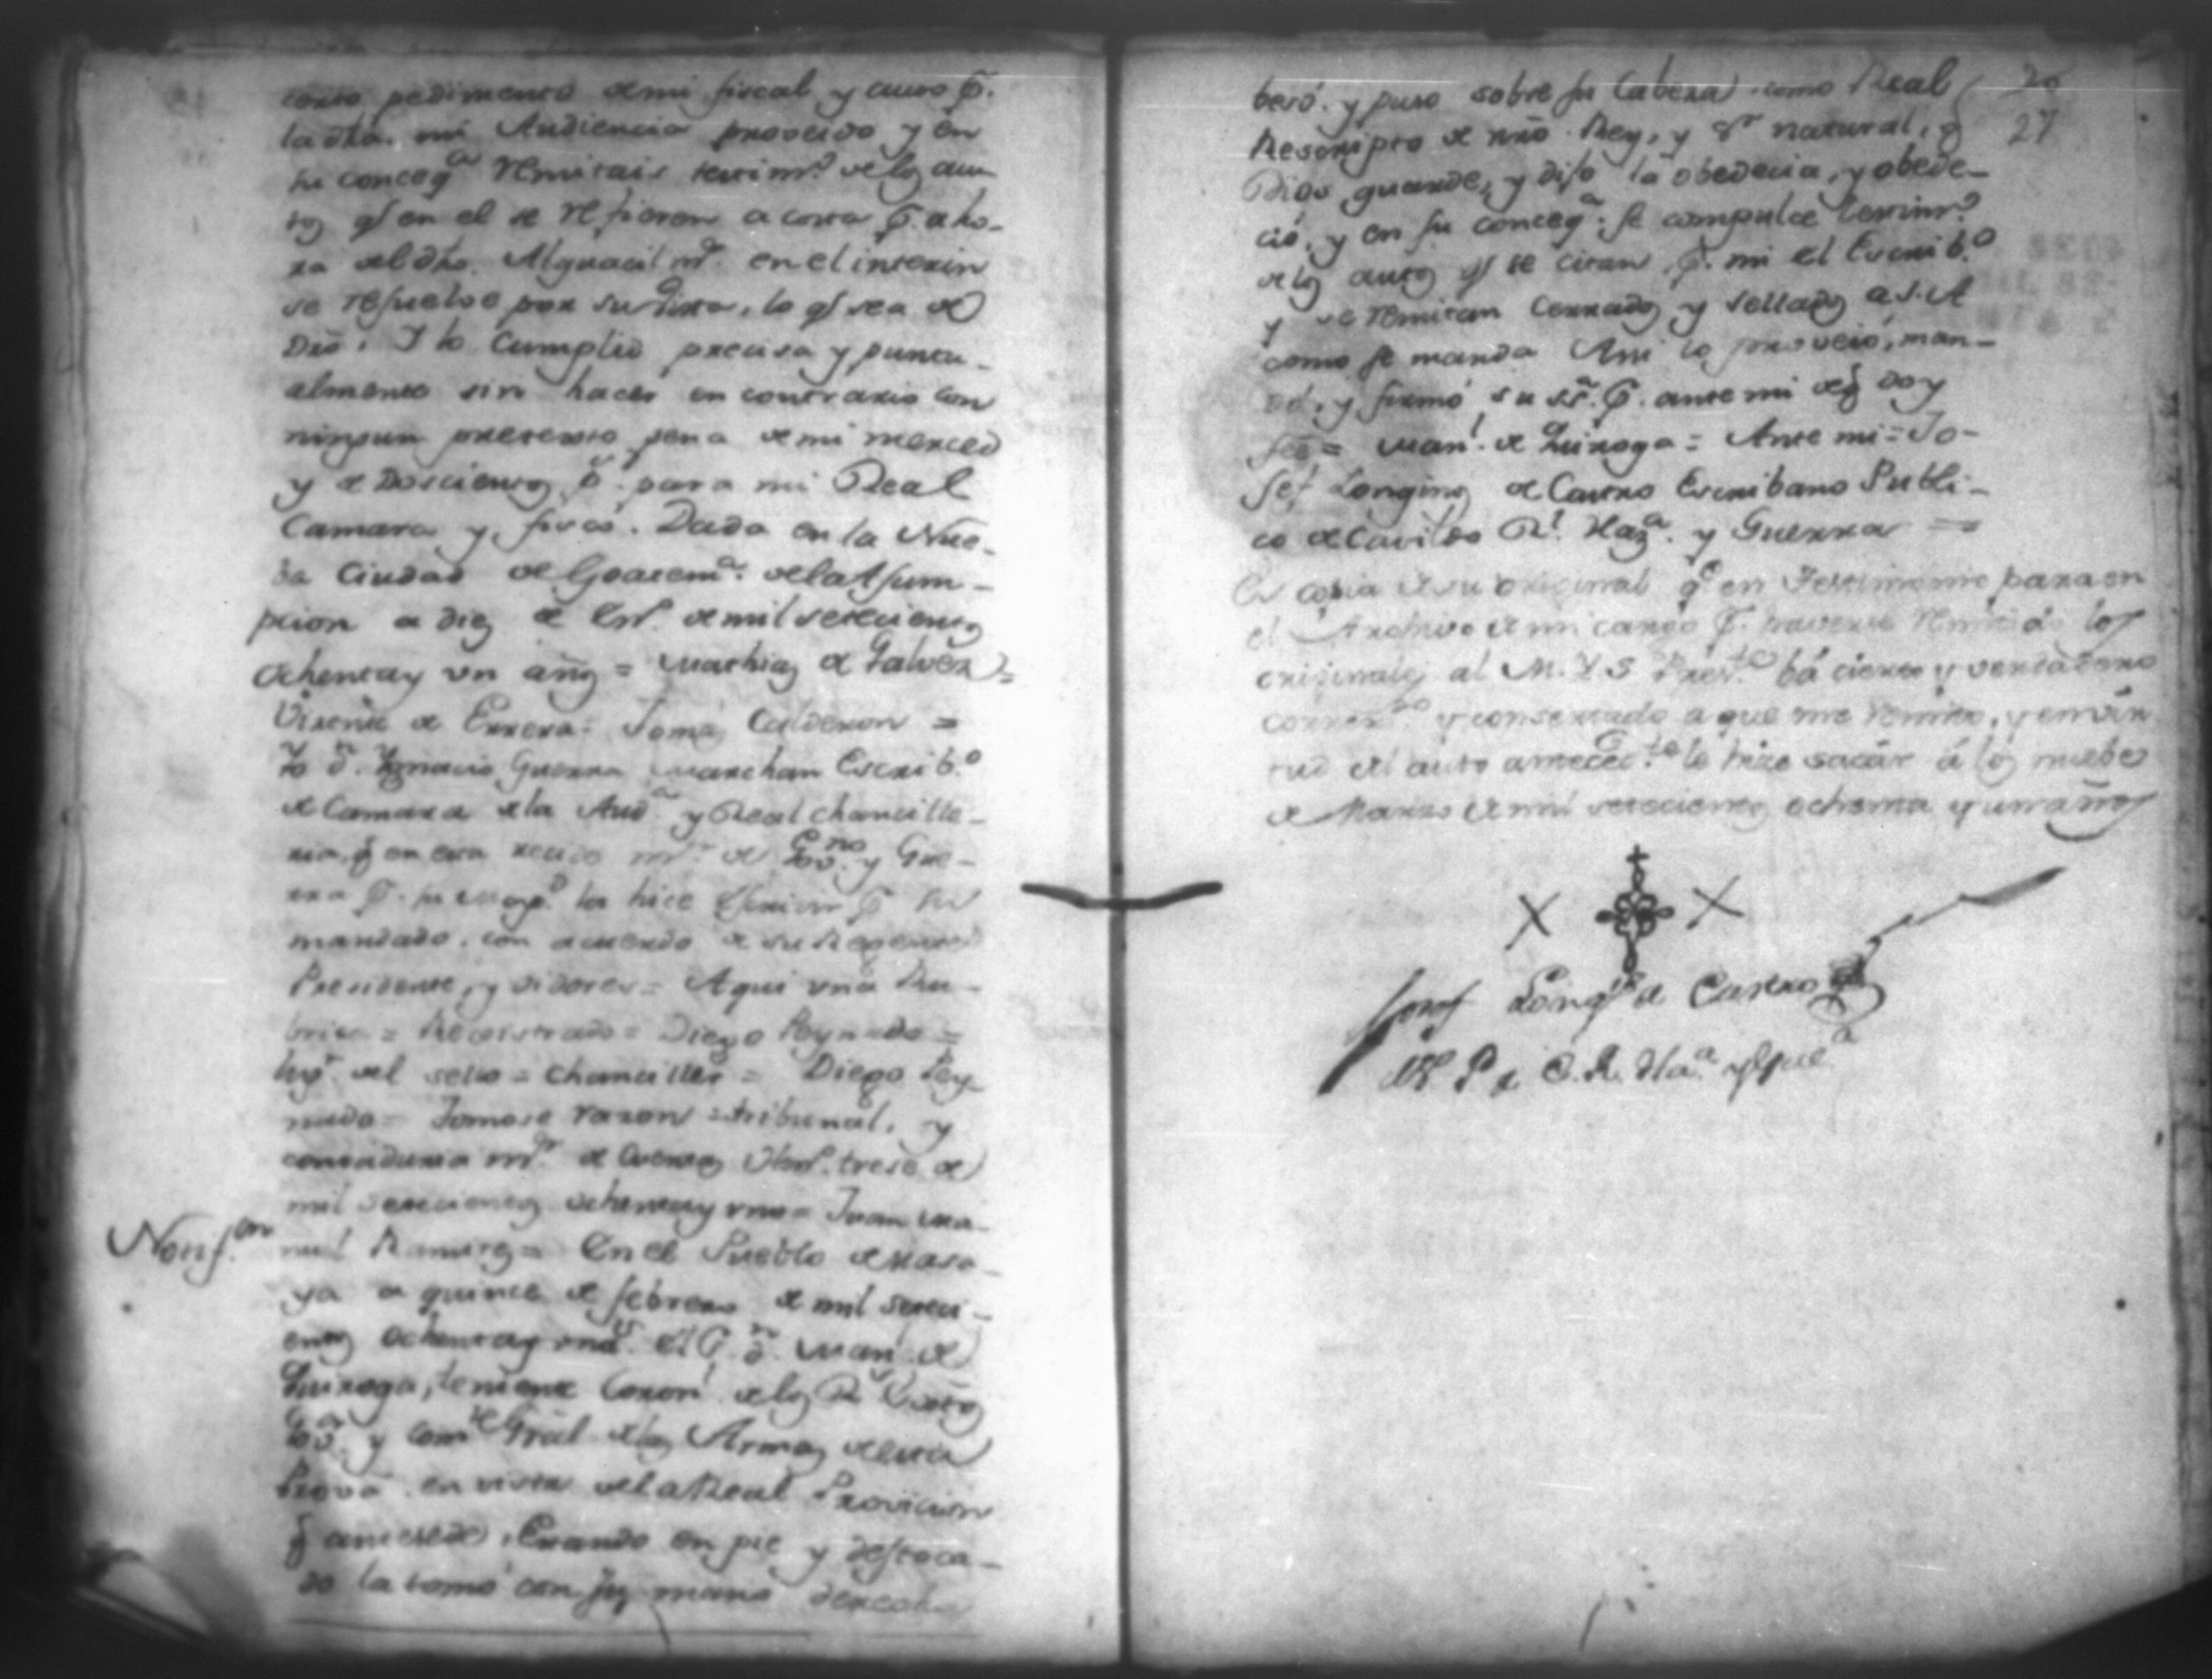 pedimento de mi fiscal y auto p.r
la dha. mi Audiencia proveido y en
su conceq.a remitais testim.o de los au-
tos q.e en el se refieren a costa p.r aho-
ra del dho. Alguacil m.r en el interin
se resuelve por su dixa, lo q.e sea de
Dro. Y lo cumplid precisa y puntu-
almente sin hacer en contrario con
ningun pretexto pena de mi merced
y de Doscientos p.s para mi Real
Camara y fisco. Dada en la Nue-
ba Ciudad de Goatem.a de la Assum-
pcion a diez de En.o de mil setecientos
ochenta y un años = Mathias de Galvez =
Vicente de Errera = Tomas Calderon =
Yo D.n Ygnacio Guerra Marchan Escrib.o
de Camara de la Aud.a y Real chancille-
ria, q.e en esta reside m.r de Gov.no y Gue-
rra p.r su Mag.d la hice escrivir p.r su
mandado, con acuerdo de su Regente
Presidente, y oidores = Aqui una Ru-
brica = Registrado = Diego Peynado =
del sello = Chanciller = Diego Pey-
nado = Tomose razon = tribunal, y
contaduria m.r de Cuentas trese de
mil setecientos ochenta y uno = Juan Ma-
nuel Ramires = En el Pueblo de Masa-
Notif.on
ya a quince de febrero de mil seteci-
entos ochenta y un el S.r D.n Man.l de
Quiroga, teniente Coron.l de los R.s Exctos
Gov.r y Com.te Gral de las Armas de esta
Prov.a en vista de la Real Provicion
q.e antesede, Estando en pie y destoca-
do la tomó con su mano derecha
besó, y puso sobre su Cabeza, como Real
26
27
Rescripto de nro Rey, y S.r natural, q.e
Dios guarde, y dijo la obedecia, y obede-
ció, y en su conceq.a se compulce testim.o
de los autos q.e se citan p.r mi el Escrib.o
y se remitan Cerrados y sellados a S.A
como se manda Assi lo proveió, man-
dó, y firmó su s.ria p.r ante mi de q.e doy
fee = Man.l de Quiroga = Ante mi = Jo-
sef Longinos de Castro Escribano Publi-
co de Cavildo R.l Haz.a y Guerra =
Es copia de su original q.e en Testimonio para en
el Archivo de mi cargo p.r haverse remitido los
originales al M. Y S Presid.te bá cierto y verdadero
y consertado a que me remito, y en vir-
tud del auto antecec.te lo hize sacár á los nuebe
de Marzo de mil setecientos ochenta y un años
Josef Long.s de Castro
P.o C. R. Ha.a y Gue.a